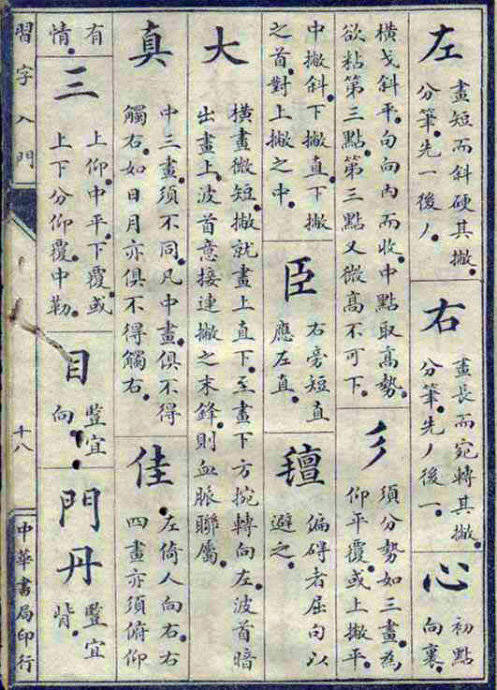 左
畫短而斜硬其撇。
分筆先一後丿。
右
畫長而宛轉其撇。
分筆先丿後一。
心
初點
向裏。
橫戈斜平。句向內而收。中點取高勢。
欲粘第三點。第三點又微高不可下。
彡
須分勢如三畫。為
仰平覆。或上撇平。
中撇斜。下撇直。下撇
之首。對上撇之中。
臣
右旁短直
應左直。
偏碍者屈句以
避之。
大
橫畫微短。撇就畫上直下。至畫下方捥轉向左。波首暗
出畫上。波首意接連撇之末鋒。則血脈聯屬。
真
中三畫須不同。凡中畫。俱不得
觸右。如日月亦俱不得觸右。
佳
左倚人向右。右
四畫亦須俯仰
有
情。
三
上仰。中平。下覆。或
上下分仰覆。中勒。
目
豎宜
向。
門丹
豎宜
背。
習字入門
十八
中華書局印行